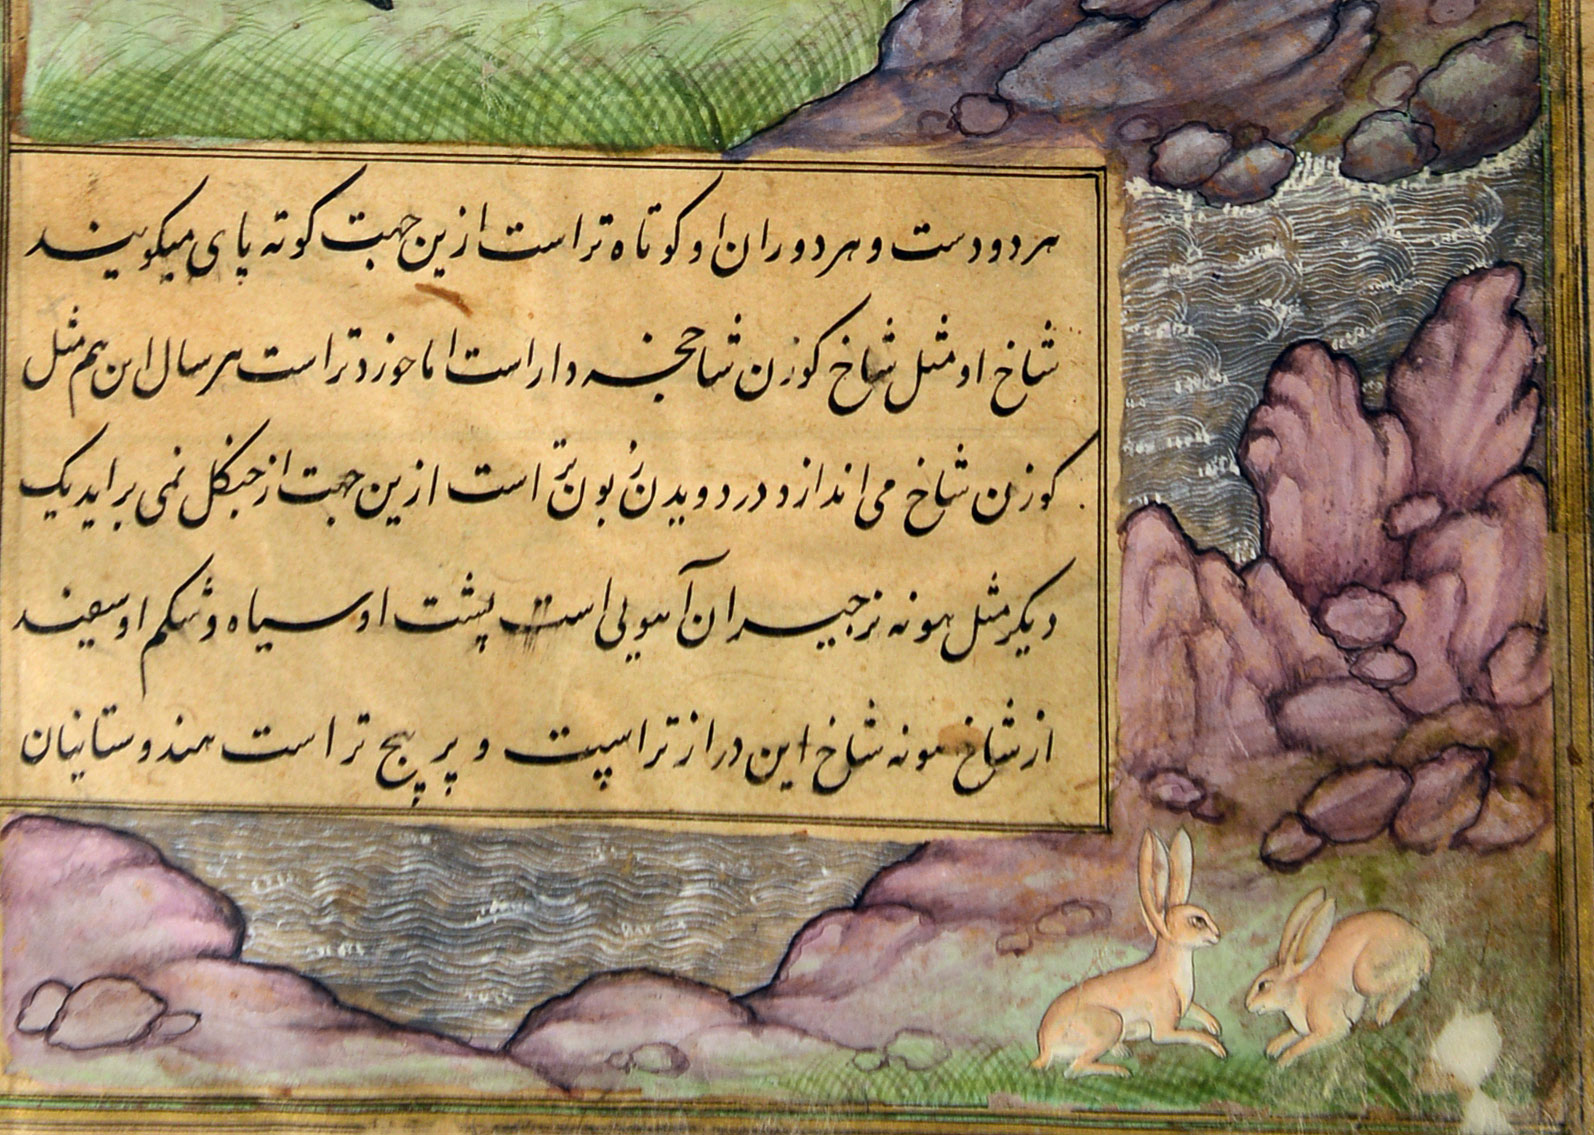 هر دو دست و هر دو ران او کوتاه تر است ازین جهت کوته پای میکویند
شاخ او مثل شاخ کوزن شاخجه دار است اما خوردتر است هر سال این هم مثل
کوزن شاخ می اندازد در دویدن زبون تر است ازین جهت از جنکل نمی براید یک
دیکر مثل هونه نر جیران آهویی است پشت او سیاه و شکم او سفید
از شاخ هونه شاخ این دراز تر است و پر پیچ تر است هندوستانیان